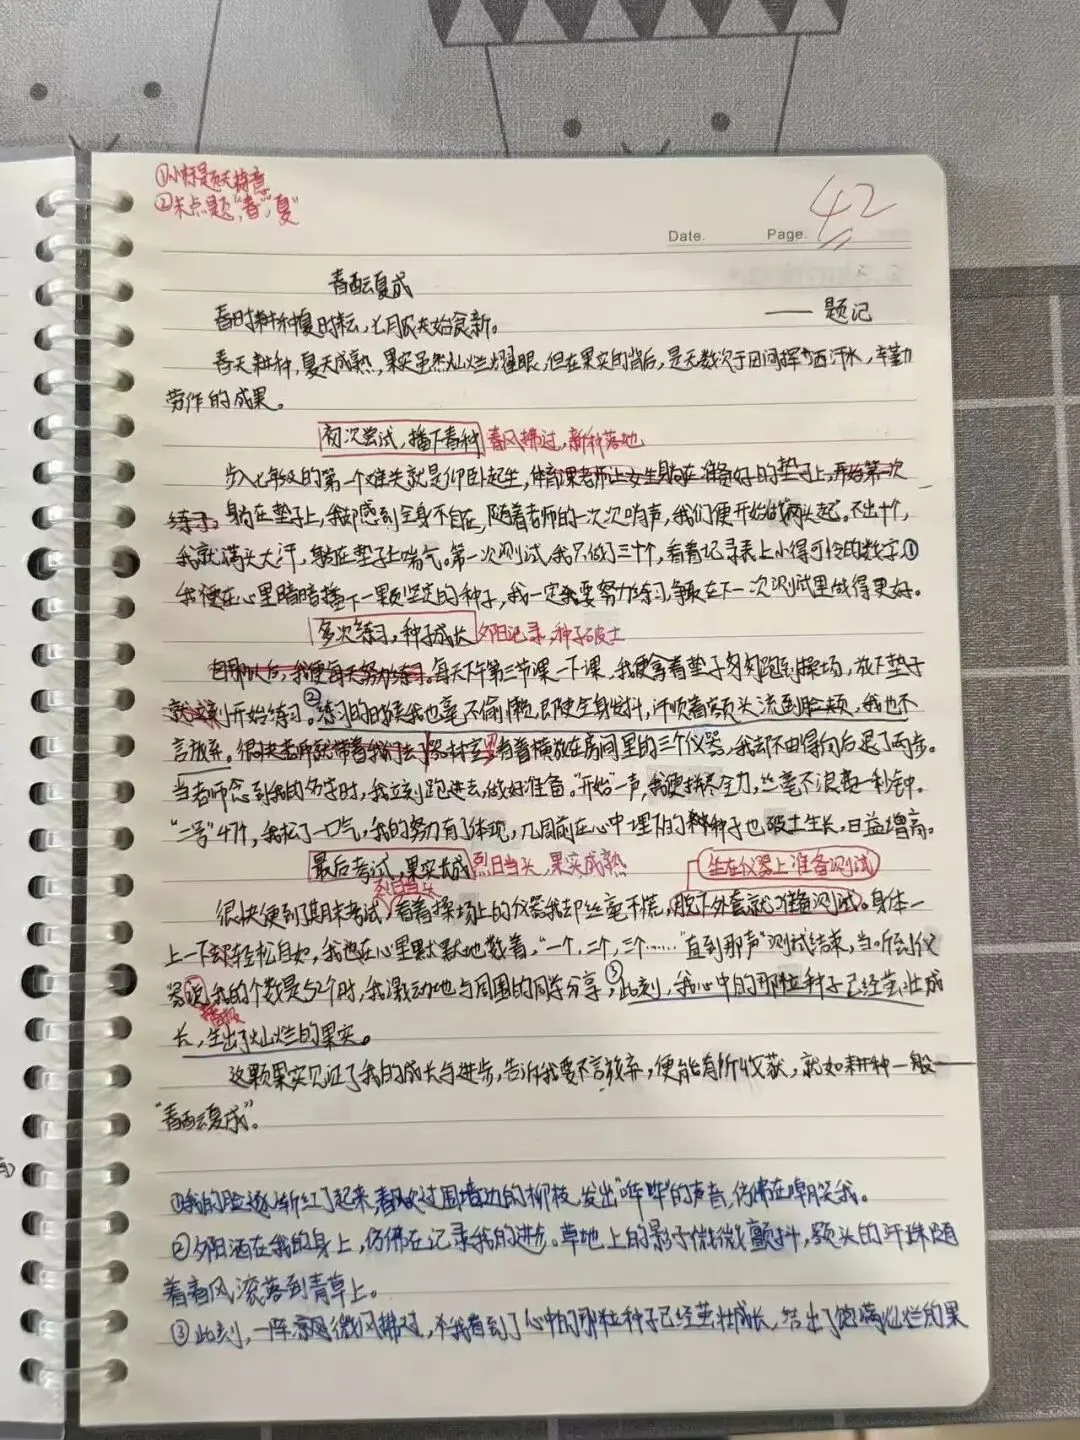 ①小标题无特意
②未点题"春""夏"
42
Date.
Page.
春酝夏成
春时耕种夏时耘，七月农夫始食新。
——题记
春天耕种，夏天成熟，果实虽然灿烂耀眼，但在果实的背后，是无数次于田间挥洒汗水，辛勤
劳作的成果。
初次尝试，播下春种 春风拂过，新种落地
步入七年级的第一个难关就是仰卧起坐，体育课老师让女生躺在准备好的垫子上，开始第一次
练习。躺在垫子上，我却感到全身不自在，随着老师的一次次哨声，我们便开始做两头起。不出十个，
我就满头大汗，躺在垫子上喘气。第一次测试，我只做了三十个，看着记录表上小得可怜的数字，①
我便在心里暗暗播下一颗坚定的种子，我一定要努力练习，争取在下一次测试里做得更好。
多次练习，种子成长 夕阳记录，种子破土
自那以后，我便每天努力练习。每天下午第三节课一下课，我便拿着垫子匆匆跑到操场，放下垫子
就立刻开始练习。②练习的时候我也毫不偷懒，即使全身发抖，汗顺着额头流到脸颊，我也不
言放弃。很快老师就带着我们去了器材室，看着横放在房间里的三个仪器，我却不由得向后退了两步。
当老师念到我的名字时，我立刻跑进去，做好准备。"开始"一声，我便拼尽全力，丝毫不浪费一秒钟。
"二号"47个，我松了一口气，我的努力有了体现，几周前在心中埋下的种子也破土生长，日益增高。
最后考试，果实长成 烈日当头，果实成熟
坐在仪器上准备测试
烈日当头
很快便到了期末考试，看着操场上的仪器我却丝毫不慌，脱下外套就准备测试。身体一
上一下却轻松自如，我也在心里默默地数着，"一个，二个，三个……"直到那声"测试结束，当听到仪
器说我的个数是52个时，我激动地与周围的同学分享，③此刻，我心中的那粒种子已经茁壮成
播报
长，生出了灿烂的果实。
这颗果实见证了我的成长与进步，告诉我要不言放弃，便能有所收获，就如耕种一般——
"春酝夏成"。
①我的脸逐渐红了起来，春风吹过围墙边的柳枝，发出"哗哗"的声音，仿佛在嘲笑我。
②夕阳洒在我的身上，仿佛在记录我的进步。草地上的影子微微颤抖，额头的汗珠随
着春风滚落到青草上。
③此刻，一阵微风拂过，我看到了心中的那粒种子已经茁壮成长，结出了饱满灿烂的果